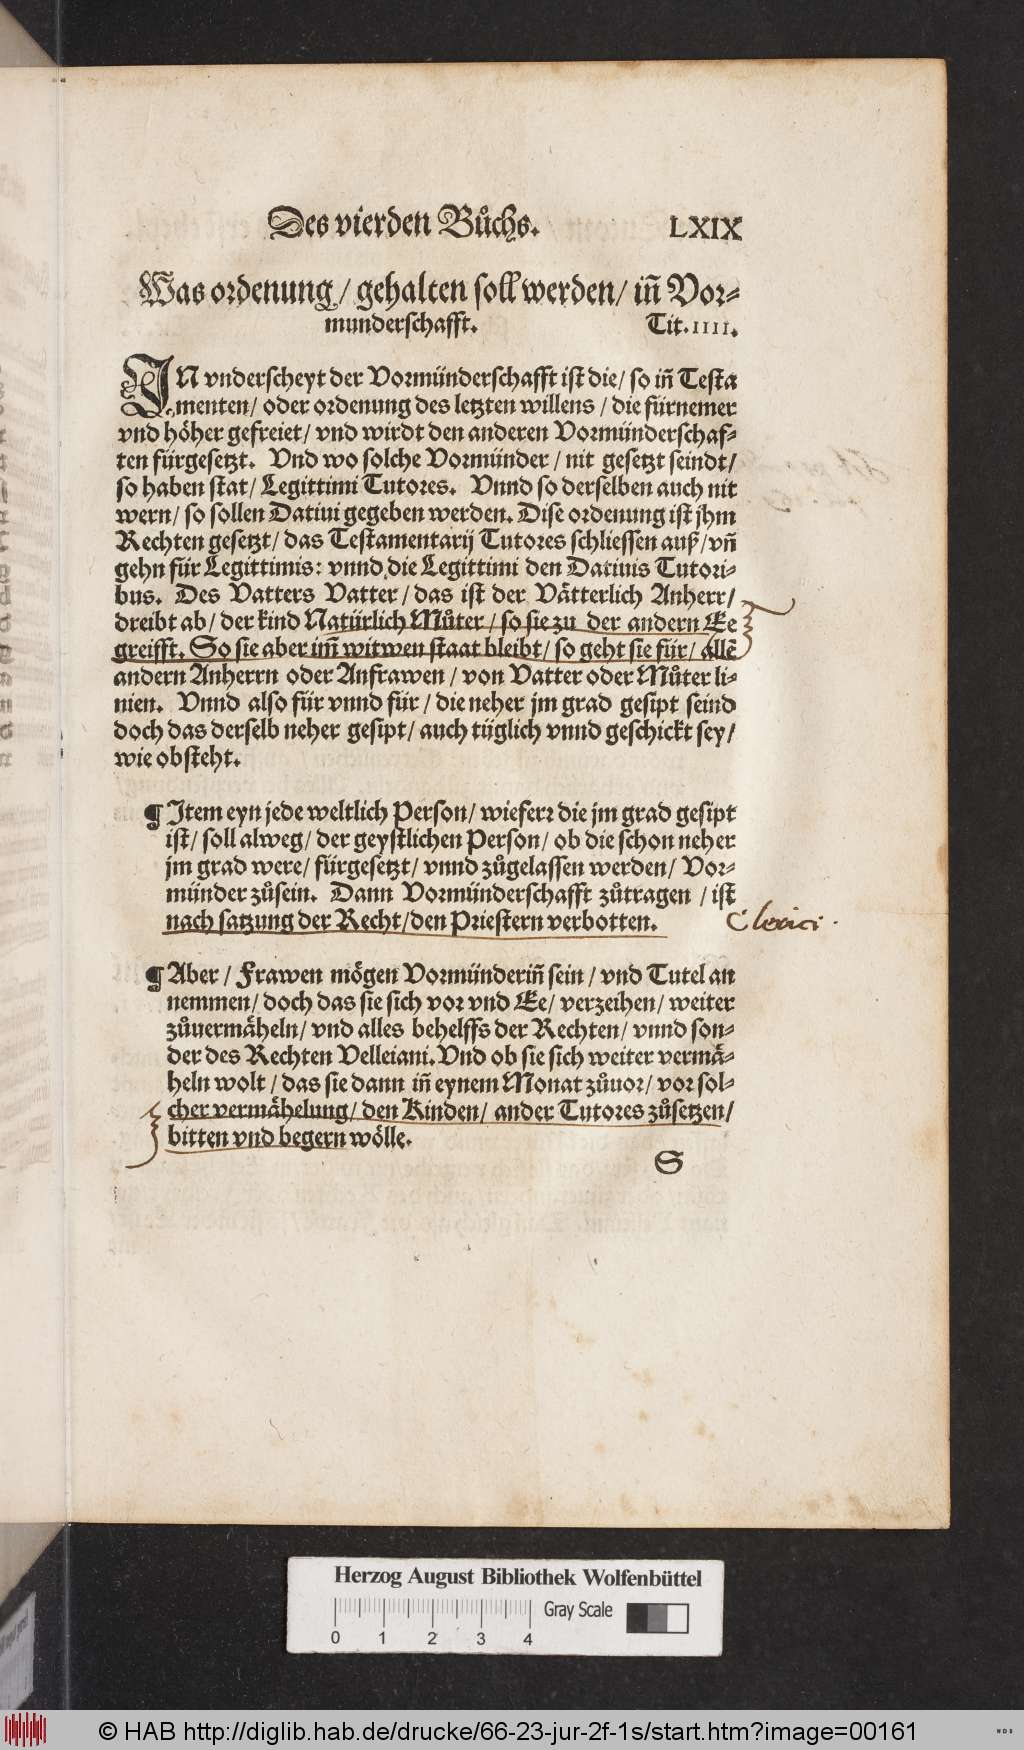 Des vierden Bůchs. LXIX
Was ordenung / gehalten soll werden / iñ Vor-
munderschafft. Tit. IIII.
IN vnderscheyt der Vormünderschafft ist die / so iñ Testa
menten / oder ordenung des letzten willens / die fürnemer
vnd höher gefreiet / vnd wirdt den anderen Vormünderschaf-
ten fürgesetzt. Vnd wo solche Vormünder / nit gesetzt seindt /
so haben stat / Legittimi Tutores. Vnnd so derselben auch nit
wern / so sollen Datiui gegeben werden. Dise ordenung ist jhm
Rechten gesetzt / das Testamentarij Tutores schliessen auß / vñ
gehn für Legittimis: vnnd die Legittimi den Datiuis Tutori-
bus. Des Vatters Vatter / das ist der Vätterlich Anherr /
dreibt ab / der kind Natürlich Můter / so sie zu der andern Ee
greifft. So sie aber im̃ witwen staat bleibt / so geht sie für / allẽ
andern Anherrn oder Anfrawen / von Vatter oder Můter li-
nien. Vnnd also für vnnd für / die neher jm grad gesipt seind
doch das derselb neher gesipt / auch tüglich vnnd geschickt sey /
wie obsteht.
¶ Item eyn jede weltlich Person / wieferꝛ die jm grad gesipt
ist / soll alweg / der geystlichen Person / ob die schon neher
jm grad were / fürgesetzt / vnnd zůgelassen werden / Vor-
münder zůsein. Dann Vormünderschafft zůtragen / ist
nach satzung der Recht / den Priestern verbotten. Clerici.
¶ Aber / Frawen mögen Vormünderiñ sein / vnd Tutel an
nemmen / doch das sie sich vor vnd Ee / verzeihen / weiter
zůuermäheln / vnd alles behelffs der Rechten / vnnd son-
der des Rechten Velleiani. Vnd ob sie sich weiter vermä-
heln wolt / das sie dann iñ eynem Monat zůuor / vor sol-
cher vermähelung / den Kinden / ander Tutores zůsetzen /
bitten vnd begern wölle.
S
Herzog August Bibliothek Wolfenbüttel
0 1 2 3 4 Gray Scale
© HAB http://diglib.hab.de/drucke/66-23-jur-2f-1s/start.htm?image=00161